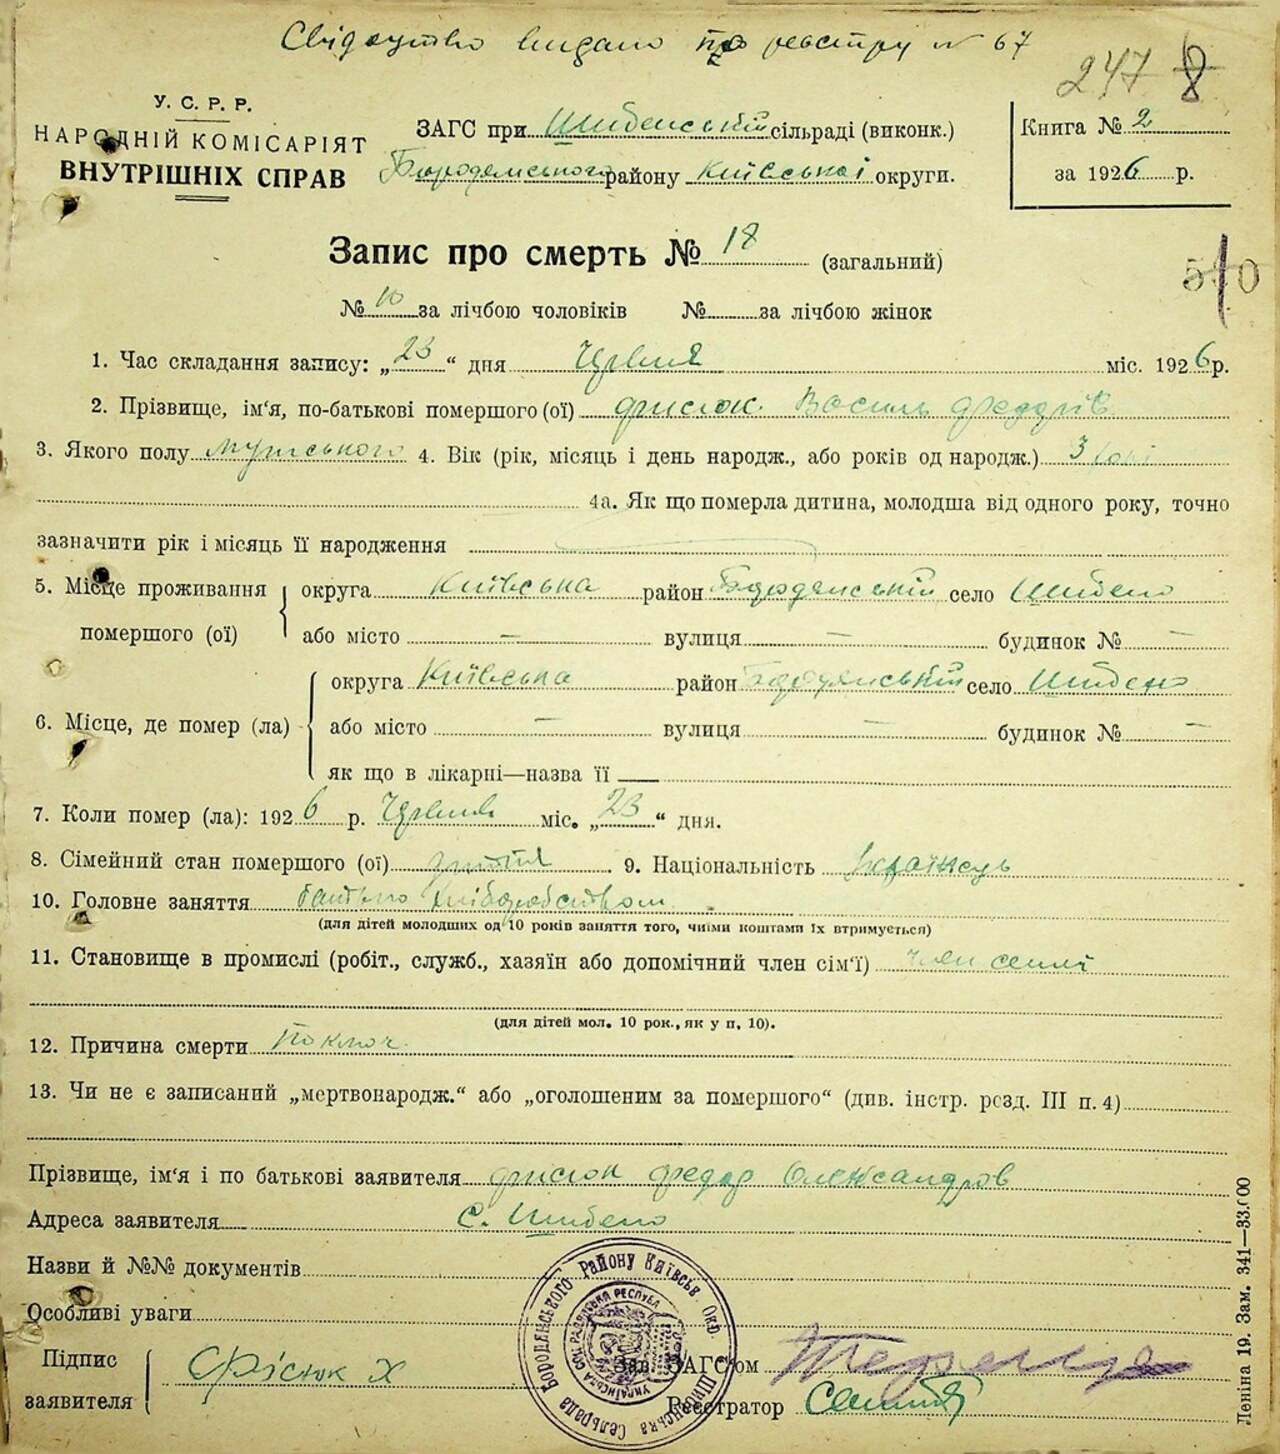 Свідоцтво видано по реєстру № 67
247 8
У. С. Р. Р.
НАРОДНІЙ КОМІСАРІЯТ
ВНУТРІШНІХ СПРАВ
ЗАГС при Шибенській сільраді (виконк.)
Бородянського району Київської округи.
Книга № 2
за 1926 р.
Запис про смерть № 18 (загальний)
510
№ 10 за лічбою чоловіків № за лічбою жінок
1. Час складання запису: „23“ дня Червня міс. 1926 р.
2. Прізвище, ім‘я, по-батькові помершого (ої) Фисюк Василь Федорів
3. Якого полу мужського 4. Вік (рік, місяць і день народж., або років од народж.) 3
4а. Як що померла дитина, молодша від одного року, точно
зазначити рік і місяць її народження
5. Місце проживання помершого (ої) округа Київська район Бородянський село Шибено
або місто — вулиця — будинок № —
6. Місце, де помер (ла) округа Київська район Бородянський село Шибено
або місто — вулиця — будинок № —
як що в лікарні—назва її
7. Коли помер (ла): 1926 р. Червня міс. „23“ дня.
8. Сімейний стан помершого (ої) дитя 9. Національність Українець
10. Головне заняття батько хліборобством
(для дітей молодших од 10 років заняття того, чиїми коштами їх втримується)
11. Становище в промислі (робіт., служб., хазяїн або допомічний член сім‘ї) член семї
(для дітей мол. 10 рок., як у п. 10).
12. Причина смерти
13. Чи не є записаний „мертвонародж.“ або „оголошеним за помершого“ (див. інстр. розд. III п. 4)
Прізвище, ім‘я і по батькові заявителя Фисюк Федор Олександров
Адреса заявителя С. Шибено
Назви й №№ документів
Особливі уваги
Підпис заявителя Фісюк Х
Зав. ЗАГС‘ом
Реєстратор
Шибенська Сельрада Бородянського Району Київськ. Окр.
Українська Соц. Радянська Республ.
Леніна 19. Зам. 341—33.000